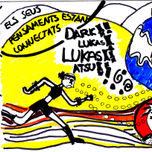 ELS SEUS
PENSAMENTS ESTAN
CONNECTATS
DARK!!
LUKAS
LUKAS!!
ATSUE!!